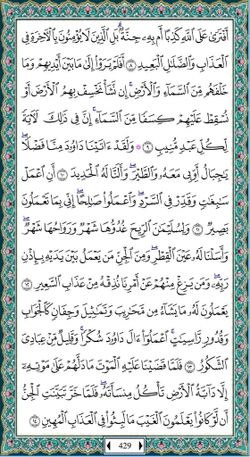 أَفْتَرَىٰ عَلَى ٱللَّهِ كَذِبًا أَم بِهِۦ جِنَّةٌۢ ۗ بَلِ ٱلَّذِينَ لَا يُؤْمِنُونَ بِٱلْءَاخِرَةِ فِى
ٱلْعَذَابِ وَٱلضَّلَـٰلِ ٱلْبَعِيدِ ۝٨ أَفَلَمْ يَرَوْا۟ إِلَىٰ مَا بَيْنَ أَيْدِيهِمْ وَمَا
خَلْفَهُم مِّنَ ٱلسَّمَآءِ وَٱلْأَرْضِ ۚ إِن نَّشَأْ نَخْسِفْ بِهِمُ ٱلْأَرْضَ أَوْ
نُسْقِطْ عَلَيْهِمْ كِسَفًا مِّنَ ٱلسَّمَآءِ ۚ إِنَّ فِى ذَٰلِكَ لَـَٔايَةً
لِّكُلِّ عَبْدٍ مُّنِيبٍ ۝٩ ۞ وَلَقَدْ ءَاتَيْنَا دَاوُۥدَ مِنَّا فَضْلًا ۖ
يَـٰجِبَالُ أَوِّبِى مَعَهُۥ وَٱلطَّيْرَ ۖ وَأَلَنَّا لَهُ ٱلْحَدِيدَ ۝١٠ أَنِ ٱعْمَلْ
سَـٰبِغَـٰتٍ وَقَدِّرْ فِى ٱلسَّرْدِ ۖ وَٱعْمَلُوا۟ صَـٰلِحًا ۖ إِنِّى بِمَا تَعْمَلُونَ
بَصِيرٌ ۝١١ وَلِسُلَيْمَـٰنَ ٱلرِّيحَ غُدُوُّهَا شَهْرٌ وَرَوَاحُهَا شَهْرٌ ۖ
وَأَسَلْنَا لَهُۥ عَيْنَ ٱلْقِطْرِ ۖ وَمِنَ ٱلْجِنِّ مَن يَعْمَلُ بَيْنَ يَدَيْهِ بِإِذْنِ
رَبِّهِۦ ۖ وَمَن يَزِغْ مِنْهُمْ عَنْ أَمْرِنَا نُذِقْهُ مِنْ عَذَابِ ٱلسَّعِيرِ ۝١٢
يَعْمَلُونَ لَهُۥ مَا يَشَآءُ مِن مَّحَـٰرِيبَ وَتَمَـٰثِيلَ وَجِفَانٍ كَٱلْجَوَابِ
وَقُدُورٍ رَّاسِيَـٰتٍ ۚ ٱعْمَلُوٓا۟ ءَالَ دَاوُۥدَ شُكْرًا ۚ وَقَلِيلٌ مِّنْ عِبَادِىَ
ٱلشَّكُورُ ۝١٣ فَلَمَّا قَضَيْنَا عَلَيْهِ ٱلْمَوْتَ مَا دَلَّهُمْ عَلَىٰ مَوْتِهِۦٓ
إِلَّا دَآبَّةُ ٱلْأَرْضِ تَأْكُلُ مِنسَأَتَهُۥ ۖ فَلَمَّا خَرَّ تَبَيَّنَتِ ٱلْجِنُّ
أَن لَّوْ كَانُوا۟ يَعْلَمُونَ ٱلْغَيْبَ مَا لَبِثُوا۟ فِى ٱلْعَذَابِ ٱلْمُهِينِ ۝١٤
429